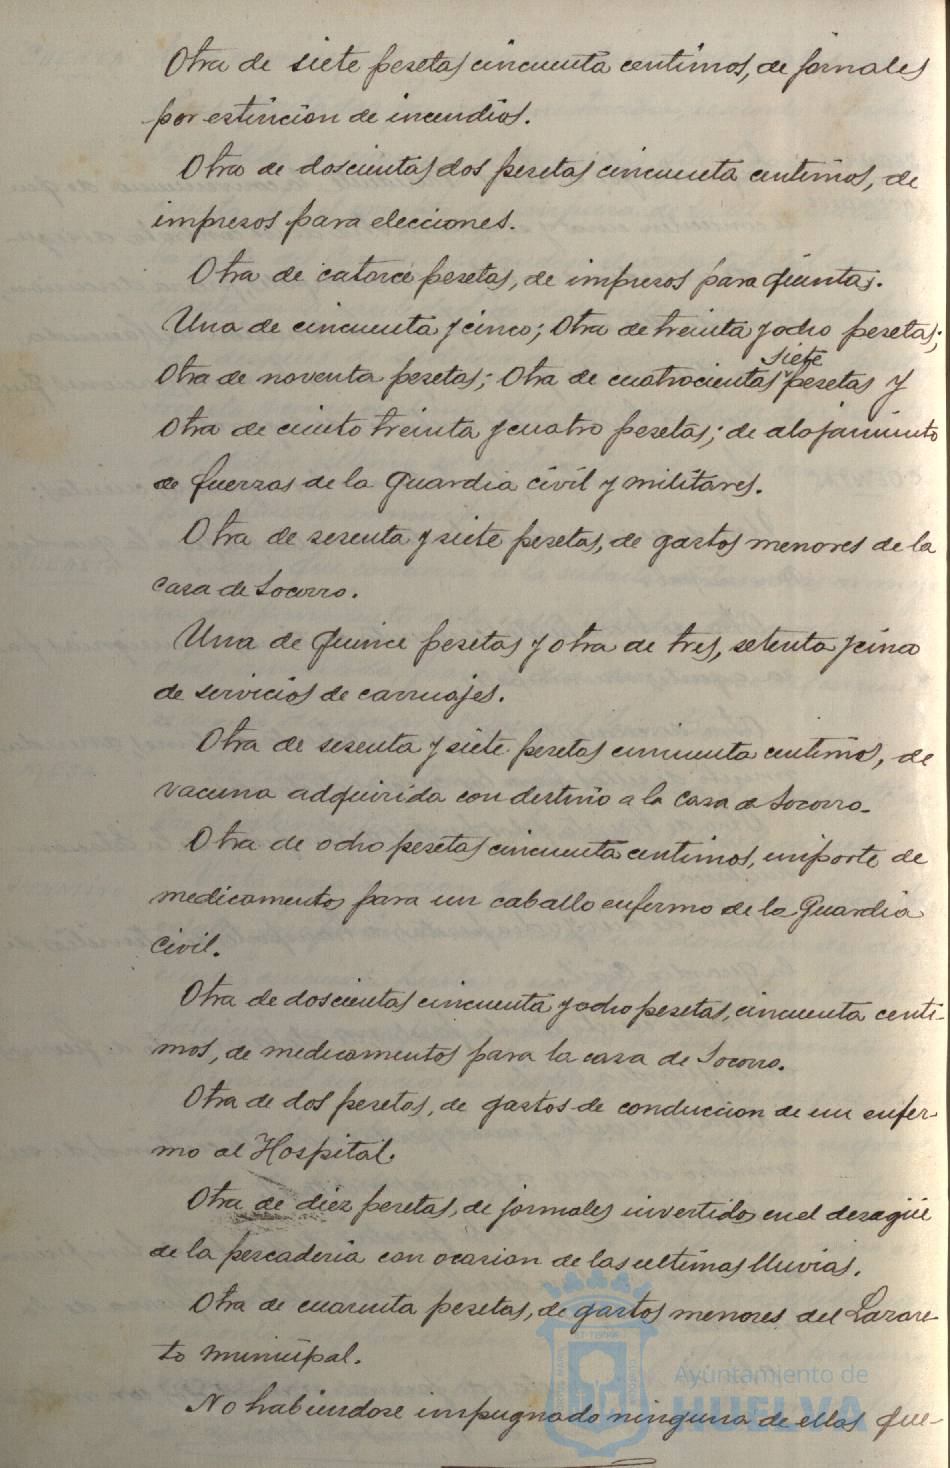 Otra de siete pesetas cincuenta centimos, de jornales
por estincion de incendios.
Otra de doscientas dos pesetas cincuenta centimos, de
impresos para elecciones.
Otra de catorce pesetas, de impresos para quintas.
Una de cincuenta y cinco; Otra de treinta y ocho pesetas;
siete
Otra de noventa pesetas; Otra de cuatrocientas pesetas y
Otra de ciento treinta y cuatro pesetas; de alojamiento
de fuerzas de la Guardia civil y militares.
Otra de sesenta y siete pesetas, de gastos menores de la
casa de Socorro.
Una de quince pesetas y otra de tres, setenta y cinco
de servicios de carruajes.
Otra de sesenta y siete pesetas cincuenta centimos, de
vacuna adquirida con destino a la Casa de Socorro.
Otra de ocho pesetas cincuenta centimos, importe de
medicamentos para un caballo enfermo de la Guardia
Civil.
Otra de doscientas cincuenta y ocho pesetas, cincuenta centi-
mos, de medicamentos para la casa de Socorro.
Otra de dos pesetas, de gastos de conduccion de un enfer-
mo al Hospital.
Otra de diez pesetas, de jornales invertidos en el desagüe
de la pescaderia con ocasion de las ultimas lluvias.
Otra de cuarenta pesetas, de gastos menores del Lazare-
to municipal.
No habiendose impugnado ninguna de ellas fue-
Ayuntamiento de
HUELVA